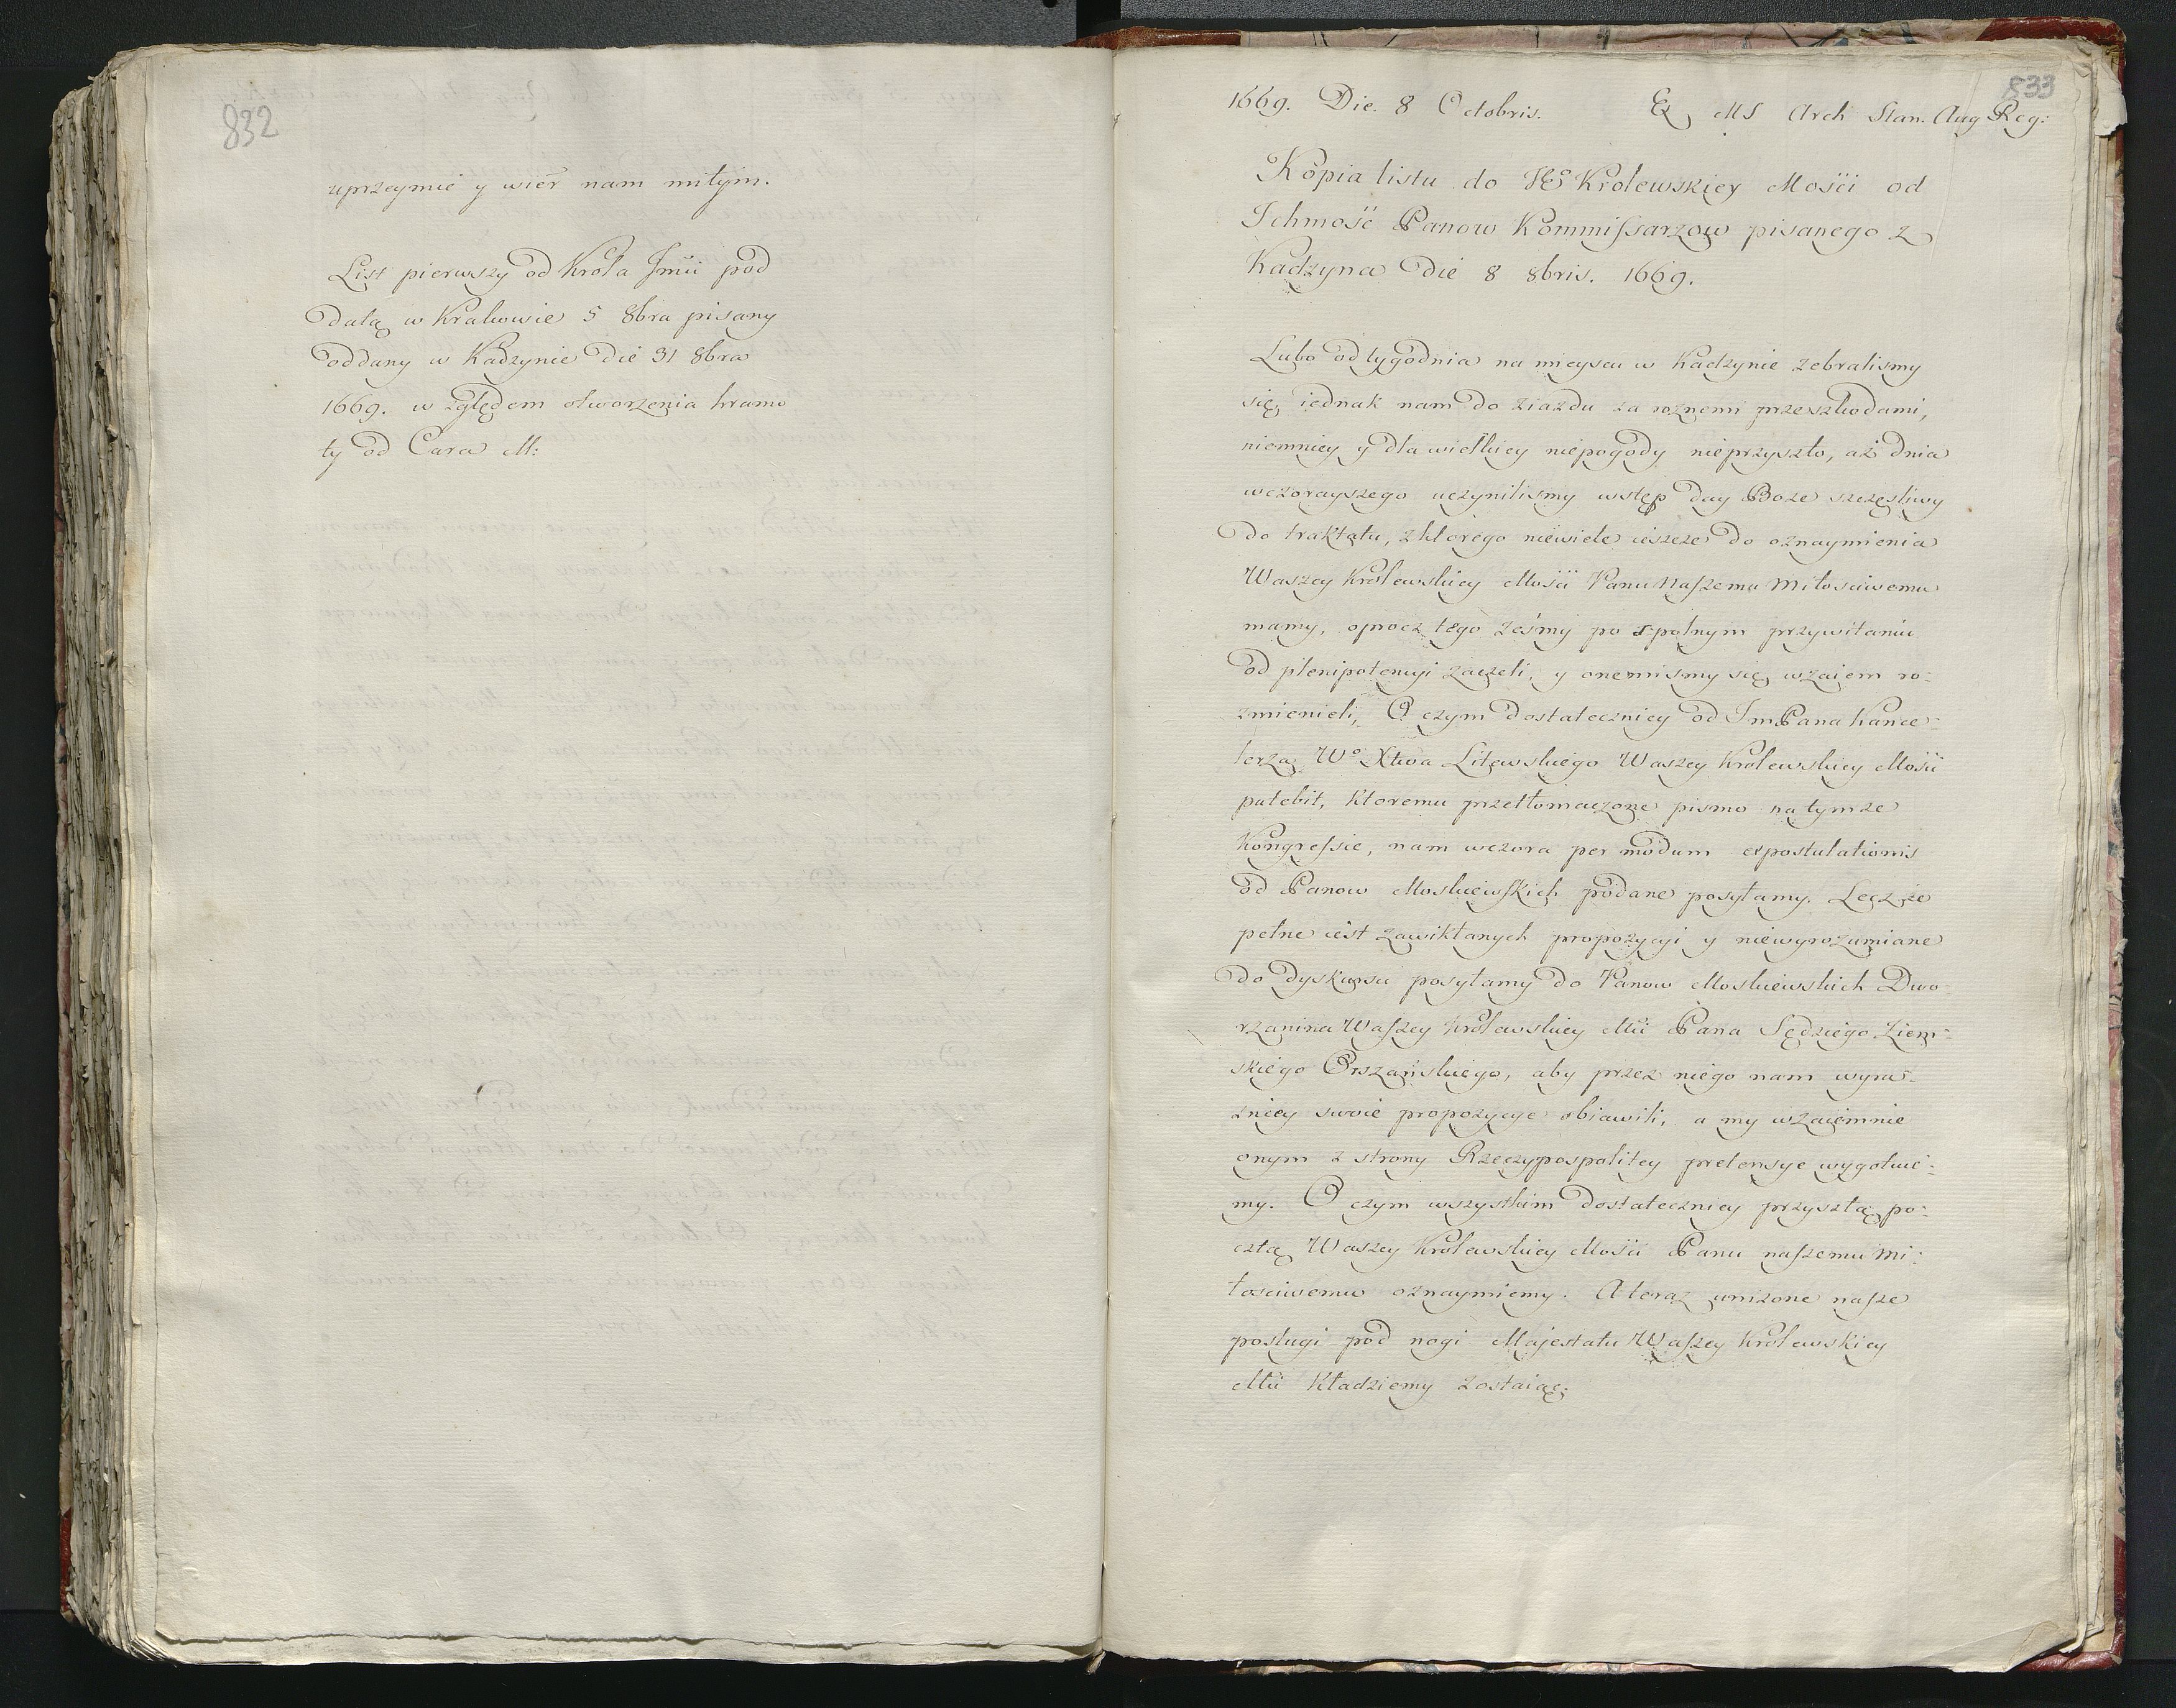 832
uprzeymie y wier nam miłym.
List pierwszy od Krola Jmci pod
Datą w Krakowie 5 8bra pisany
oddany w Kadzynie Die 31 8bra
1669. w zględem otworzenia hramo
ty od Cara M:
833
1669. Die. 8 Octobris. Ex MS Arch Stan. Aug Reg:
Kopia listu do JEo Krolewskiey Mości od
Ichmość Panow Kommissarzow pisanego z
Kadzyna Die 8 8bris. 1669.
Lubo od tygodnia na mieyscu w Kadzynie zebralismy
się, iednak nam do ziazdu za roznemi przeszkodami,
niemniey y dla wielkiey niepogody nieprzyszło, aż dnia
wczorayszego uczynilismy wstęp day Boze szczęsliwy
do traktatu, z ktorego niewiele ieszcze do oznaymienia
Waszey Krolewskiey Mości Panu Naszemu Miłosciwemu
mamy, oprocz tego żeśmy po spolnym przywitaniu
od plenipotencyi zaczeli, y onemismy się wzaiem ro-
zmienieli, O czym dostateczniey od Im Pana Kance-
lerza Wo Xtwa Litewskiego Waszey Krolewskiey Mości
patebit, ktoremu przetłomaczone pismo na tymze
Kongressie, nam wczora per modum expostulationis
od Panow Moskiewskich podane posyłamy. Lecz że
pełne iest zawikłanych propozycyi y niewyrozumiane
do dyskursu posyłamy do Panow Moskiewskich Dwo-
rzanina Waszey Krolewskiey Mci Pana Sędziego Ziem-
skiego Orszańskiego, aby przez niego nam wyra-
zniey swoie propozycye obiawili, a my wzaiemnie
onym z strony Rzeczypospolitey pretensye wygotuie-
my. O czym wszystkim dostateczniey przyszłą po-
cztą Waszey Krolewskiey Mości Panu naszemu Mi-
łosciwemu oznaymiemy. A teraz unizone nasze
posługi pod nogi Majestatu Waszey Krolewskiey
Mci Kładziemy zostaiąc.